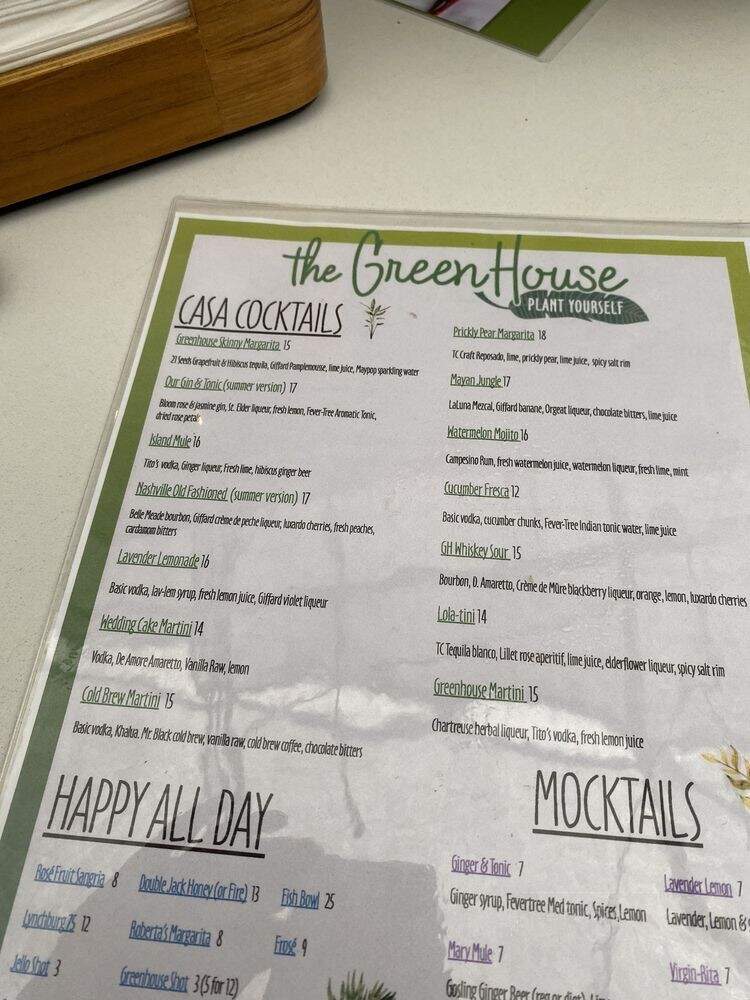 the GreenHouse
PLANT YOURSELF
CASA COCKTAILS
Greenhouse Skinny Margarita 15
21 Seeds Grapefruit & Hibiscus tequila, Giffard Pamplemousse, lime juice, Maypop sparkling water
Our Gin & Tonic (summer version) 17
Bloom rose & jasmine gin, St. Elder liqueur, fresh lemon, Fever-Tree Aromatic Tonic,
dried rose petals
Island Mule 16
Tito's vodka, Ginger liqueur, Fresh lime, hibiscus ginger beer
Nashville Old Fashioned (summer version) 17
Belle Meade bourbon, Giffard crème de peche liqueur, luxardo cherries, fresh peaches,
cardamom bitters
Lavender Lemonade 16
Basic vodka, lav-lem syrup, fresh lemon juice, Giffard violet liqueur
Wedding Cake Martini 14
Vodka, De Amore Amaretto, Vanilla Raw, lemon
Cold Brew Martini 15
Basic vodka, Khalua. Mr. Black cold brew, vanilla raw, cold brew coffee, chocolate bitters
Prickly Pear Margarita 18
TC Craft Reposado, lime, prickly pear, lime juice, spicy salt rim
Mayan Jungle 17
LaLuna Mezcal, Giffard banane, Orgeat liqueur, chocolate bitters, lime juice
Watermelon Mojito 16
Campesino Rum, fresh watermelon juice, watermelon liqueur, fresh lime, mint
Cucumber Fresca 12
Basic vodka, cucumber chunks, Fever-Tree Indian tonic water, lime juice
GH Whiskey Sour 15
Bourbon, D. Amaretto, Crème de Mûre blackberry liqueur, orange, lemon, luxardo cherries
Lola-tini 14
TC Tequila blanco, Lillet rose aperitif, lime juice, elderflower liqueur, spicy salt rim
Greenhouse Martini 15
Chartreuse herbal liqueur, Tito's vodka, fresh lemon juice
HAPPY ALL DAY
Rosé Fruit Sangria 8
Double Jack Honey (or Fire) 13
Fish Bowl 25
Lynchburg 75 12
Roberta's Margarita 8
Frosé 9
Jello Shot 3
Greenhouse Shot 3 (5 for 12)
MOCKTAILS
Ginger & Tonic 7
Ginger syrup, Fevertree Med tonic, Spices, Lemon
Lavender Lemon 7
Lavender, Lemon &
Mary Mule 7
Gosling Ginger Beer (reg or diet)
Virgin-Rita 7